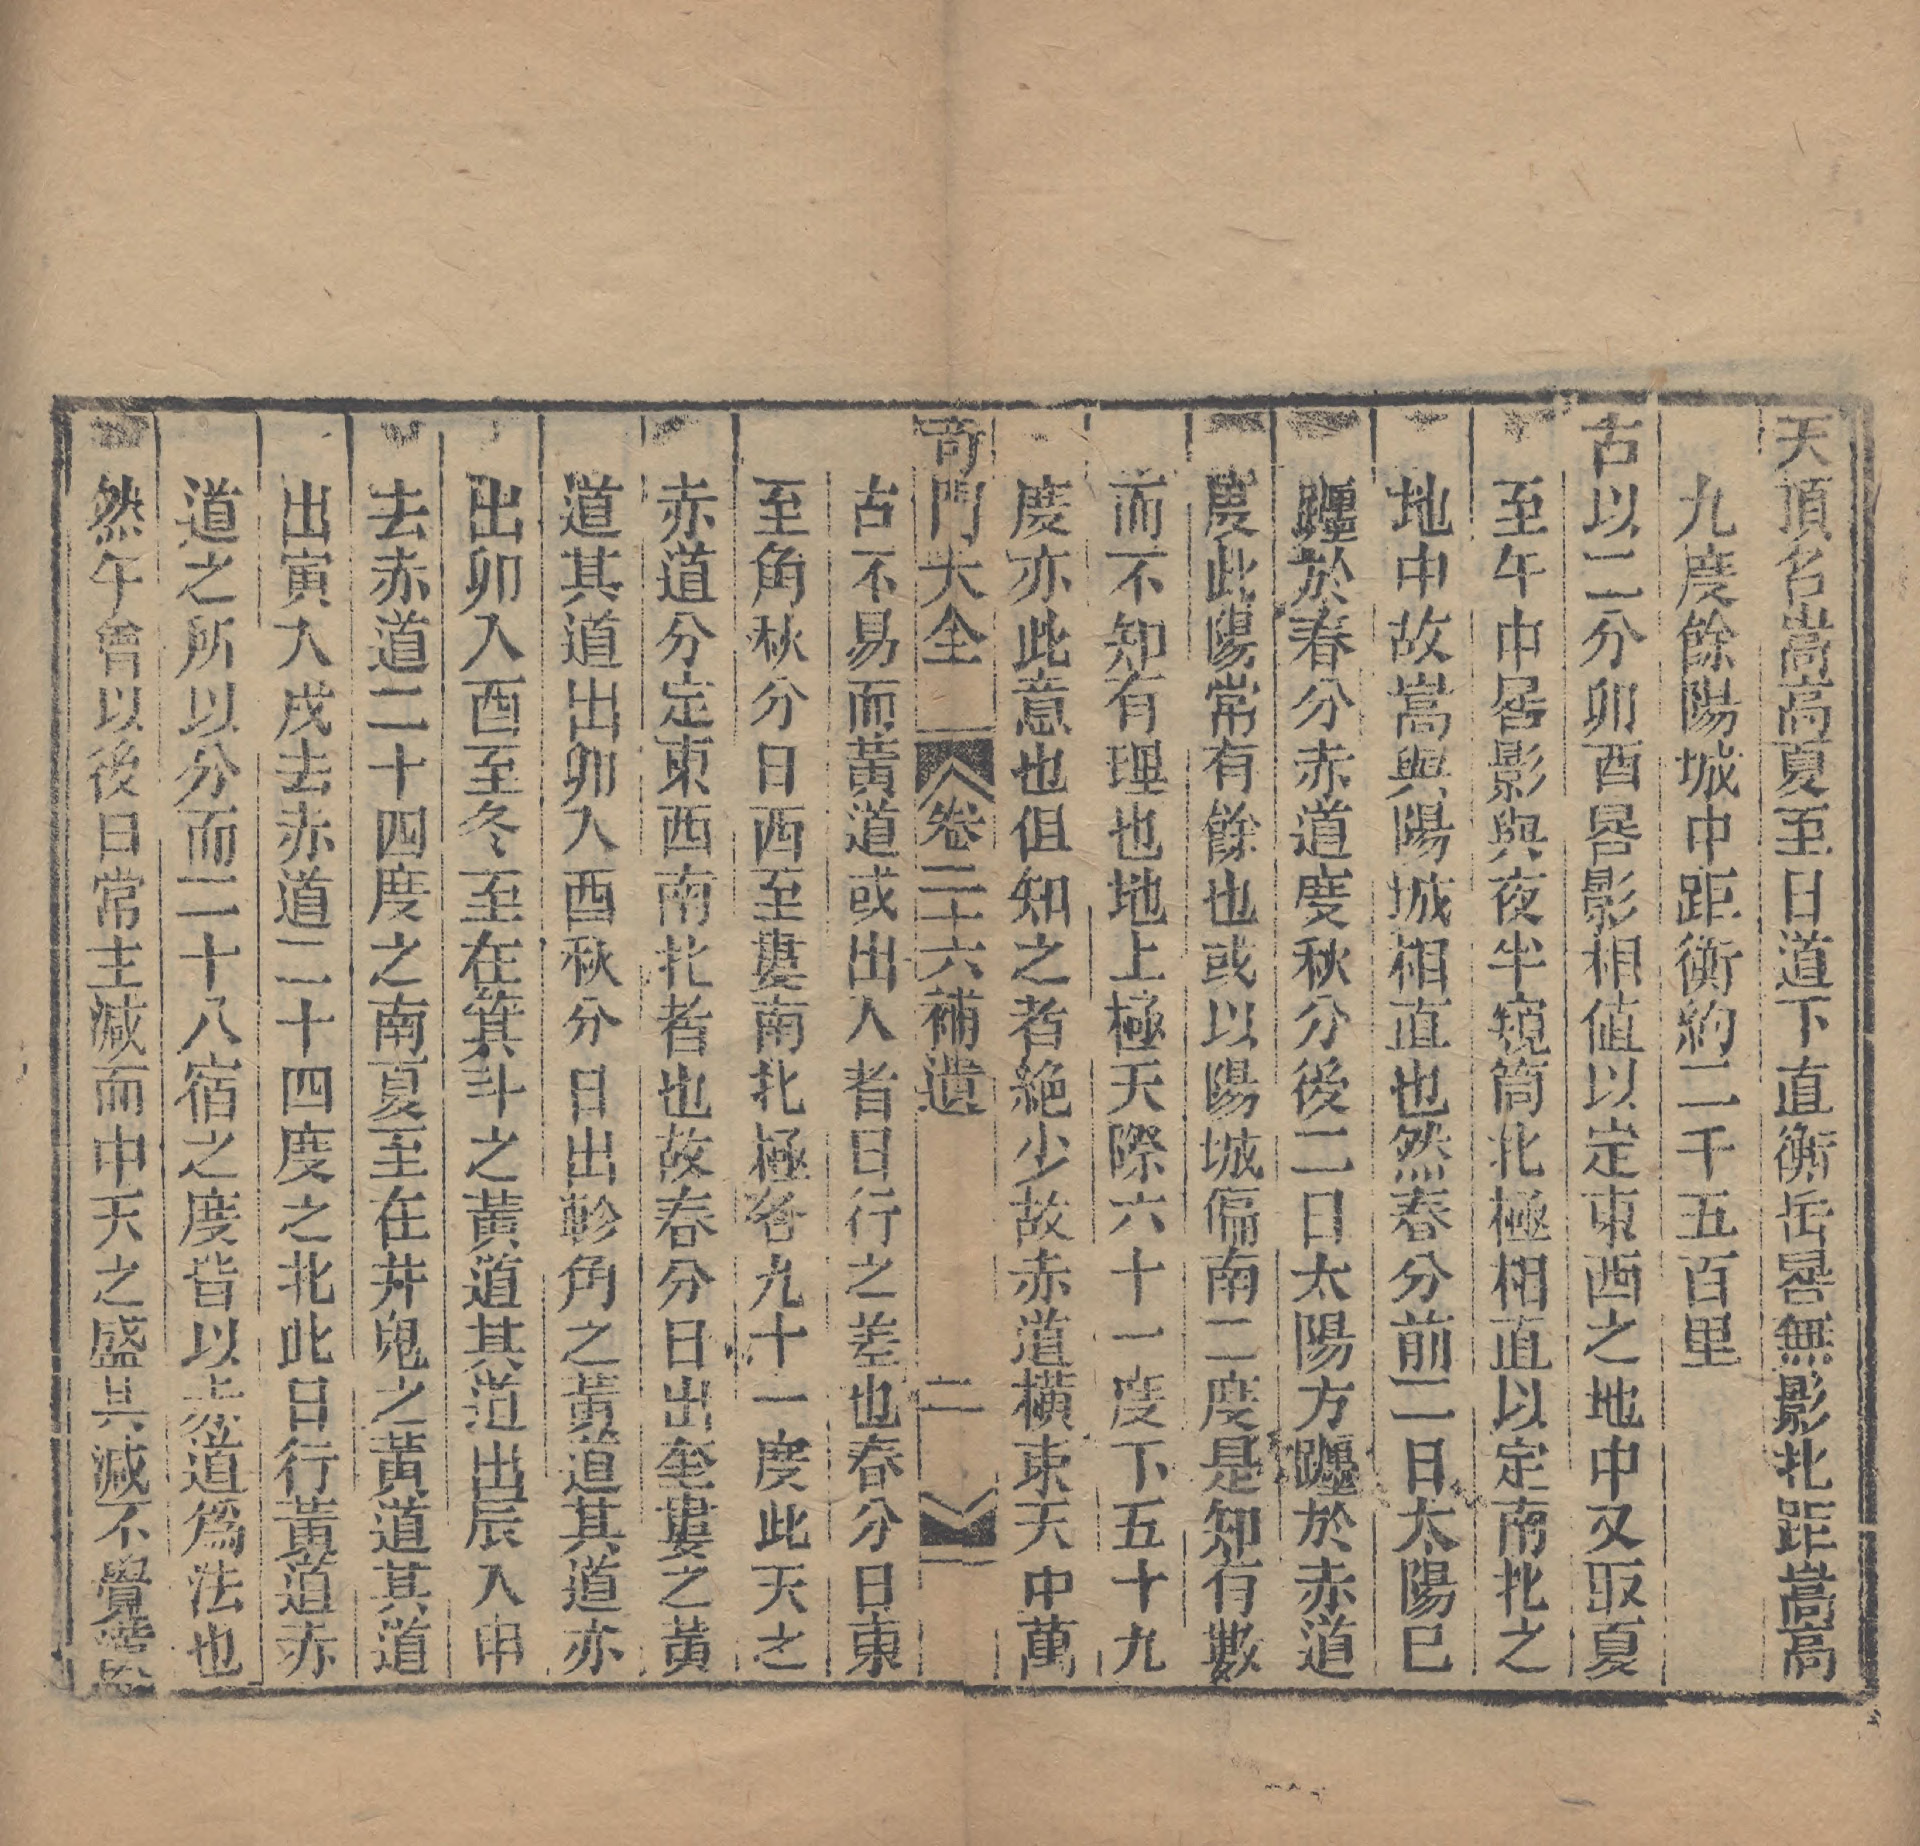 天頂名嵩高夏至日道下直衡岳晷無影北距嵩高
九度餘陽城中距衡約二千五百里
古以二分卯酉晷影相値以定東酉之地中又取夏
至午中晷影與夜半窺筒北極相直以定南北之
地中故嵩與陽城相直也然春分前二日太陽已
躔於春分赤道度秋分後二日太陽方躔於赤道
度此陽常有餘也或以陽城偏南二度是知有數
而不知有理也地上極天際六十一度下五十九
度亦此意也但知之者絶少故赤道橫東天中萬
奇門大全 卷二十六補遺 二
古不易而黃道或出入者日行之差也春分日東
至角秋分日西至婁南北極各九十一度此天之
赤道分定東西南北者也故春分日出奎婁之黃
道其道出卯入酉秋分日出軫角之黃道其道亦
出卯入酉至冬至在箕斗之黃道其道出辰入申
去赤道二十四度之南夏至在井鬼之黃道其道
出寅入戌去赤道二十四度之北此日行黃道赤
道之所以分而二十八宿之度皆以赤道爲法也
然午會以後日常主減而中天之盛其減不覺